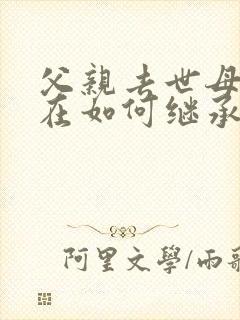 父親去世母
在如何继承
阿里文學/雨歌